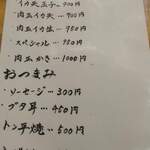 イカ天玉子ー900円
肉玉イカ天ー900円
肉玉イカ生ー950円
スペシャルー950円
肉玉かきー1000円
おつまみ
・ソーセージー300円
・ブタ耳ー450円
トン平焼ー500円